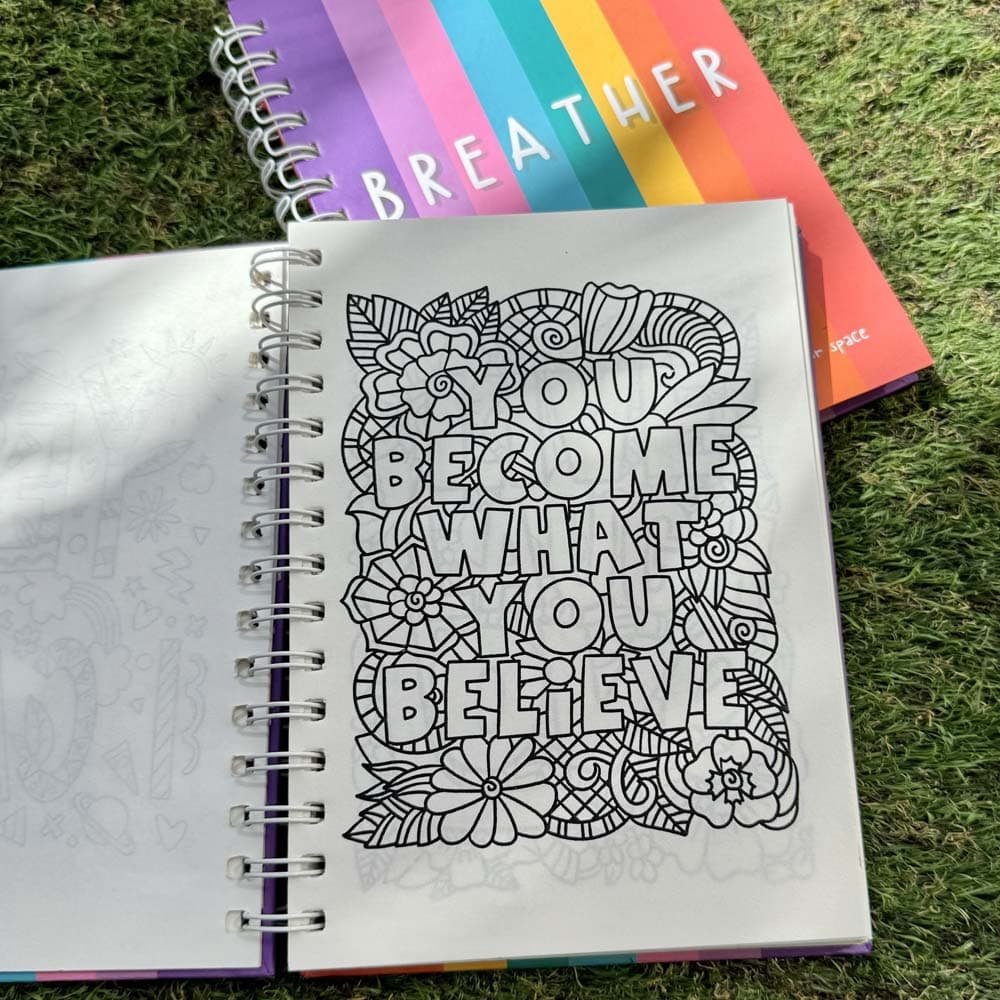 BREATHER
space
YOU
BECOME
WHAT
YOU
BELiEVE